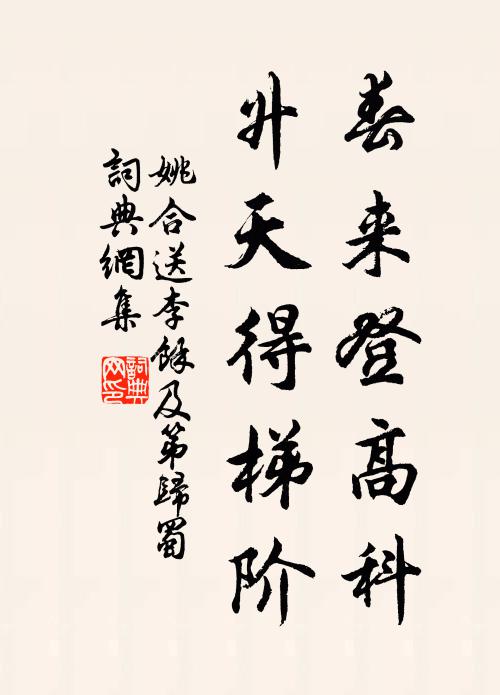 春来登高科
升天得梯阶
姚合送李餘及第歸蜀
詞典網集
詞典网印